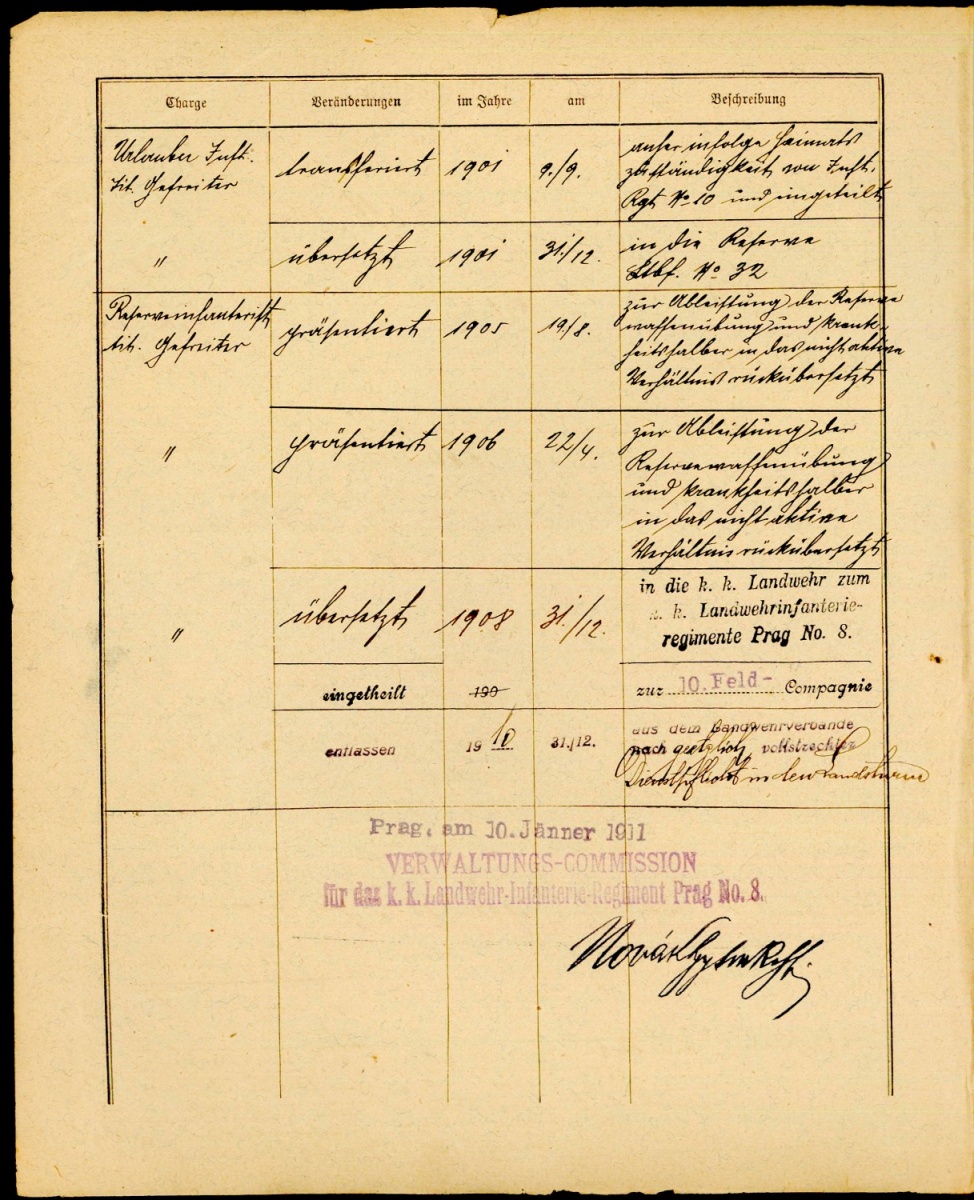 Charge Veränderungen im Jahre am Beschreibung
Urlauber Inft.
tit. Gefreiter
transferiert 1901 9./9.
anher infolge Heimats
zuständigkeit von Inft.
Rgt No 10 und eingeteilt
" übersetzt 1901 31./12.
in die Reserve
No 32
Reserveinfanterist
tit. Gefreiter
präsentiert 1905 19./8.
zur Ableistung der Reserve
waffenübung und krank-
heitshalber in das nicht aktive
Verhältnis rückübersetzt
" präsentiert 1906 22/4.
zur Ableistung der
Reservewaffenübung
und krankheitshalber
in das nicht aktive
Verhältnis rückübersetzt
" übersetzt 1908 31./12.
in die k. k. Landwehr zum
k. k. Landwehrinfanterie-
regimente Prag No. 8.
eingetheilt 190 zur 10. Feld- Compagnie
entlassen 1910 31./12.
aus dem Landwehrverbande
nach vollstreckter
Dienstpflicht in den Landsturm
Prag, am 10. Jänner 1911
VERWALTUNGS-COMMISSION
für das k. k. Landwehr-Infanterie-Regiment Prag No. 8.
Novák